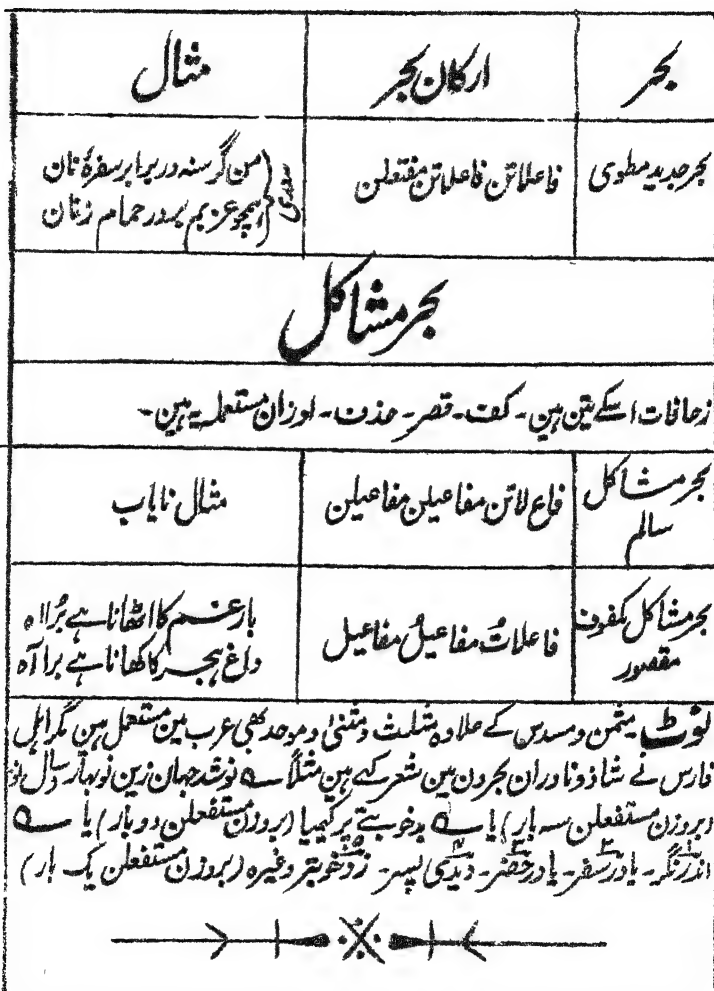 بحر ارکان بحر مثال
بحر جدید مطوی فاعلاتن فاعلاتن مفتعلن سعدی من گرسنہ در برابر سفرۂ نان
ہمچو عزبم بر در حمام زنان
بحر مشاکل
زحافات اسکے تین ہین۔ کف۔ قصر۔ حذف۔ اوزان مستعملہ یہ ہین۔
بحر مشاکل سالم فاع لاتن مفاعیلن مفاعیلن مثال نایاب
بحر مشاکل مکفوف مقصور فاعلاتُ مفاعیلُ مفاعیل بار غم کا اٹھانا ہے بُرا اہ
داغ ہجر کا کھانا ہے برا آہ
نوٹ۔ مثمن و مسدس کے علاوہ مثلث و مثنیٰ و موحد بھی عرب مین مستعمل ہین مگر اہل
فارس نے شاذ و نادر ان بحرون مین شعر کہے ہین مثلاً ؎ نو شد جہان زین نوبہار و سال نو
(بروزن مستفعلن سہ بار) یا ؎ بدخو بتے پر کیمیا (بروزن مستفعلن دو بار) یا ؎
اندر نگر۔ یا در سفر۔ یا در حضر۔ دیدی پسر۔ زو خوبتر وغیرہ (بروزن مستفعلن یک بار)